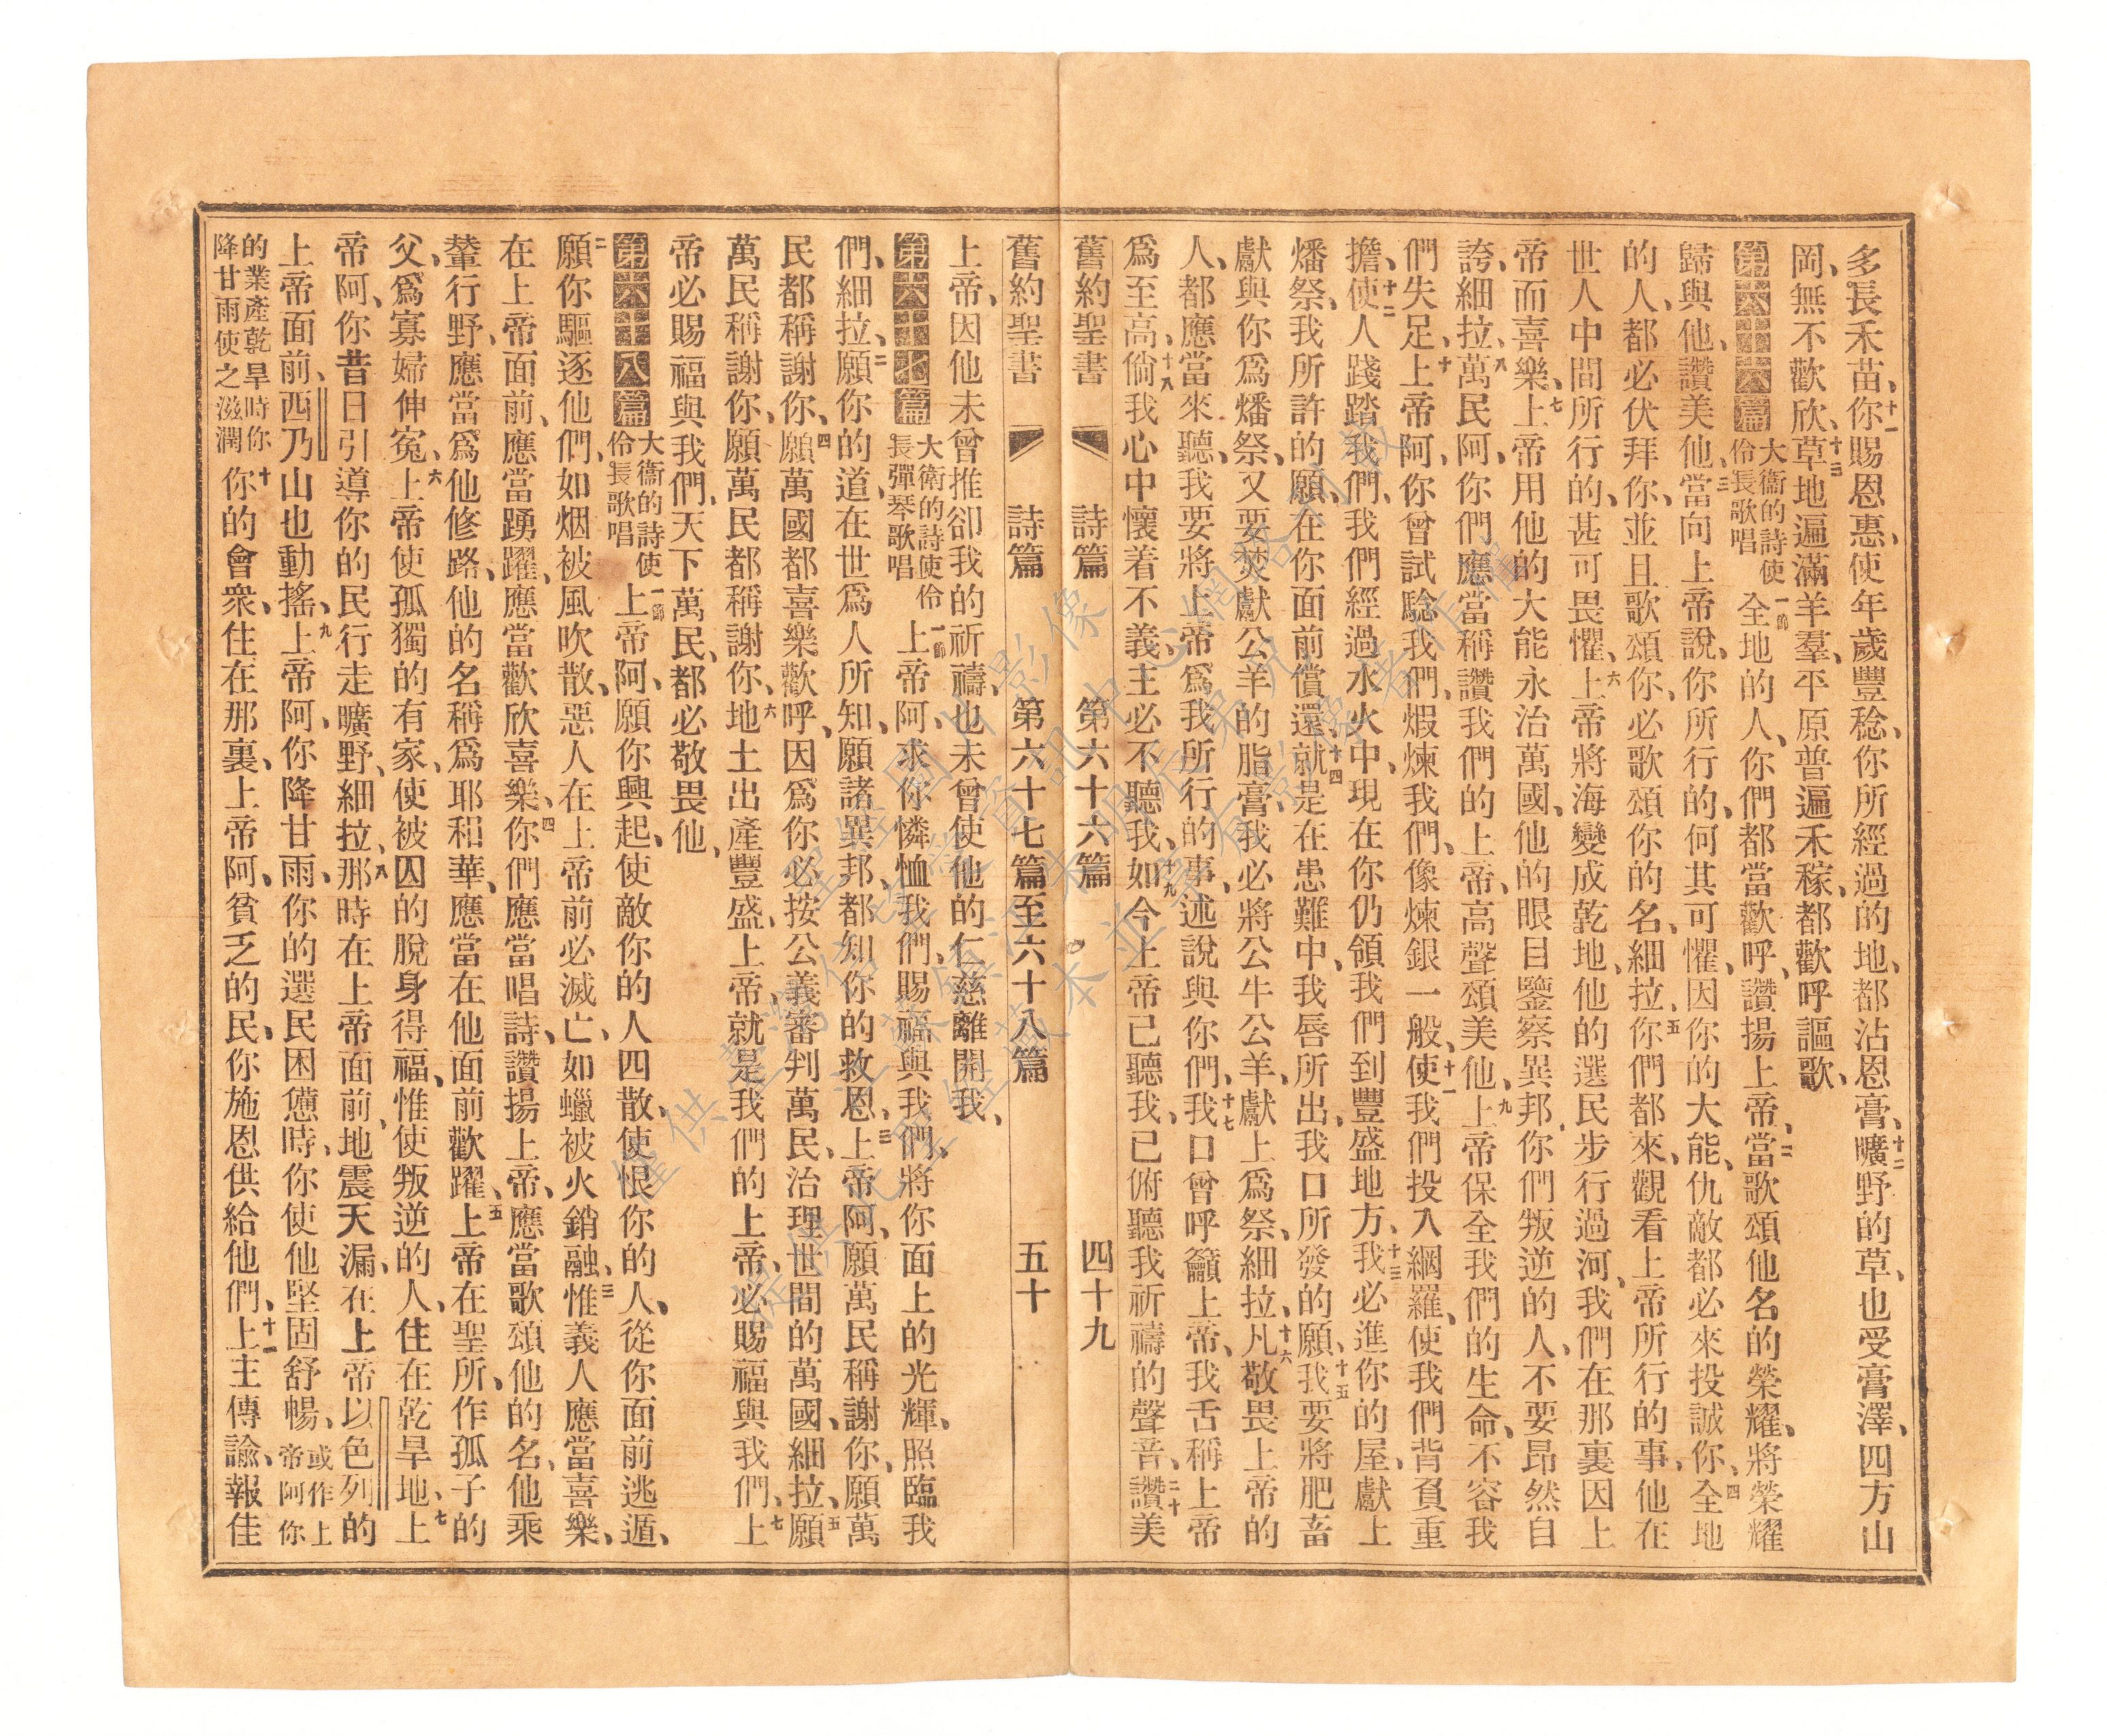 多長禾苗、十一你賜恩惠、使年歲豐稔、你所經過的地、都沾恩膏、十二曠野的草、也受膏澤、四方山
岡、無不歡欣、十三草地遍滿羊羣、平原普遍禾稼、都歡呼謳歌、
第六十六篇 大衞的詩使伶長歌唱 一節全地的人、你們都當歡呼、讚揚上帝、二當歌頌他名的榮耀、將榮耀
歸與他、讚美他、三當向上帝說、你所行的何其可懼、因你的大能、仇敵都必來投誠你、四全地
的人、都必伏拜你、並且歌頌你、必歌頌你的名、細拉、五你們都來、觀看上帝所行的事、他在
世人中間所行的、甚可畏懼、六上帝將海變成乾地、他的選民步行過河、我們在那裏因上
帝而喜樂、七上帝用他的大能永治萬國、他的眼目鑒察異邦、你們叛逆的人、不要昂然自
誇、細拉、八萬民阿、你們應當稱讚我們的上帝、高聲頌美他、九上帝保全我們的生命、不容我
們失足、十上帝阿、你曾試騐我們、煆煉我們、像煉銀一般、十一使我們投入網羅、使我們背負重
擔、十二使人踐踏我們、我們經過水火中、現在你仍領我們到豐盛地方、十三我必進你的屋、獻上
燔祭、我所許的願、在你面前償還、十四就是在患難中、我唇所出、我口所發的願、十五我要將肥畜
獻與你爲燔祭、又要焚獻公羊的脂膏、我必將公牛公羊、獻上爲祭、細拉、十六凡敬畏上帝的
人、都應當來聽、我要將上帝爲我所行的事、述說與你們、十七我口曾呼籲上帝、我舌稱上帝
爲至高、十八倘我心中懷着不義、主必不聽我、十九如今上帝已聽我、已俯聽我祈禱的聲音、二十讚美
舊約聖書 詩篇 第六十六篇 四十九
舊約聖書 詩篇 第六十七篇至六十八篇 五十
上帝、因他未曾推卻我的祈禱、也未曾使他的仁慈離開我、
第六十七篇 大衞的詩使伶長彈琴歌唱 一節上帝阿、求你憐恤我們、賜福與我們、將你面上的光輝、照臨我
們、細拉、二願你的道、在世爲人所知、願諸異邦、都知你的救恩、三上帝阿、願萬民稱謝你、願萬
民都稱謝你、四願萬國都喜樂歡呼、因爲你必按公義審判萬民、治理世間的萬國、細拉、五願
萬民稱謝你、願萬民都稱謝你、六地土出產豐盛、上帝、就是我們的上帝、必賜福與我們、七上
帝必賜福與我們、天下萬民、都必敬畏他、
第六十八篇 大衞的詩使伶長歌唱 一節上帝阿、願你興起、使敵你的人四散、使恨你的人、從你面前逃遁、
二願你驅逐他們、如烟被風吹散、惡人在上帝前必滅亡、如蠟被火銷融、三惟義人應當喜樂、
在上帝面前、應當踴躍、應當歡欣喜樂、四你們應當唱詩、讚揚上帝、應當歌頌他的名、他乘
輦行野、應當爲他修路、他的名稱爲耶和華、應當在他面前歡躍、五上帝在聖所、作孤子的
父、爲寡婦伸寃、六上帝使孤獨的有家、使被囚的脫身得福、惟使叛逆的人、住在乾旱地、七上
帝阿、你昔日引導你的民行走曠野、細拉、八那時在上帝面前、地震天漏、在上帝以色列的
上帝面前、西乃山也動搖、九上帝阿、你降甘雨、你的選民困憊時、你使他堅固舒暢、或作上帝阿你
的業產乾旱時你降甘雨使之滋潤 十你的會衆、住在那裏、上帝阿、貧乏的民、你施恩供給他們、十一上主傳諭、報佳